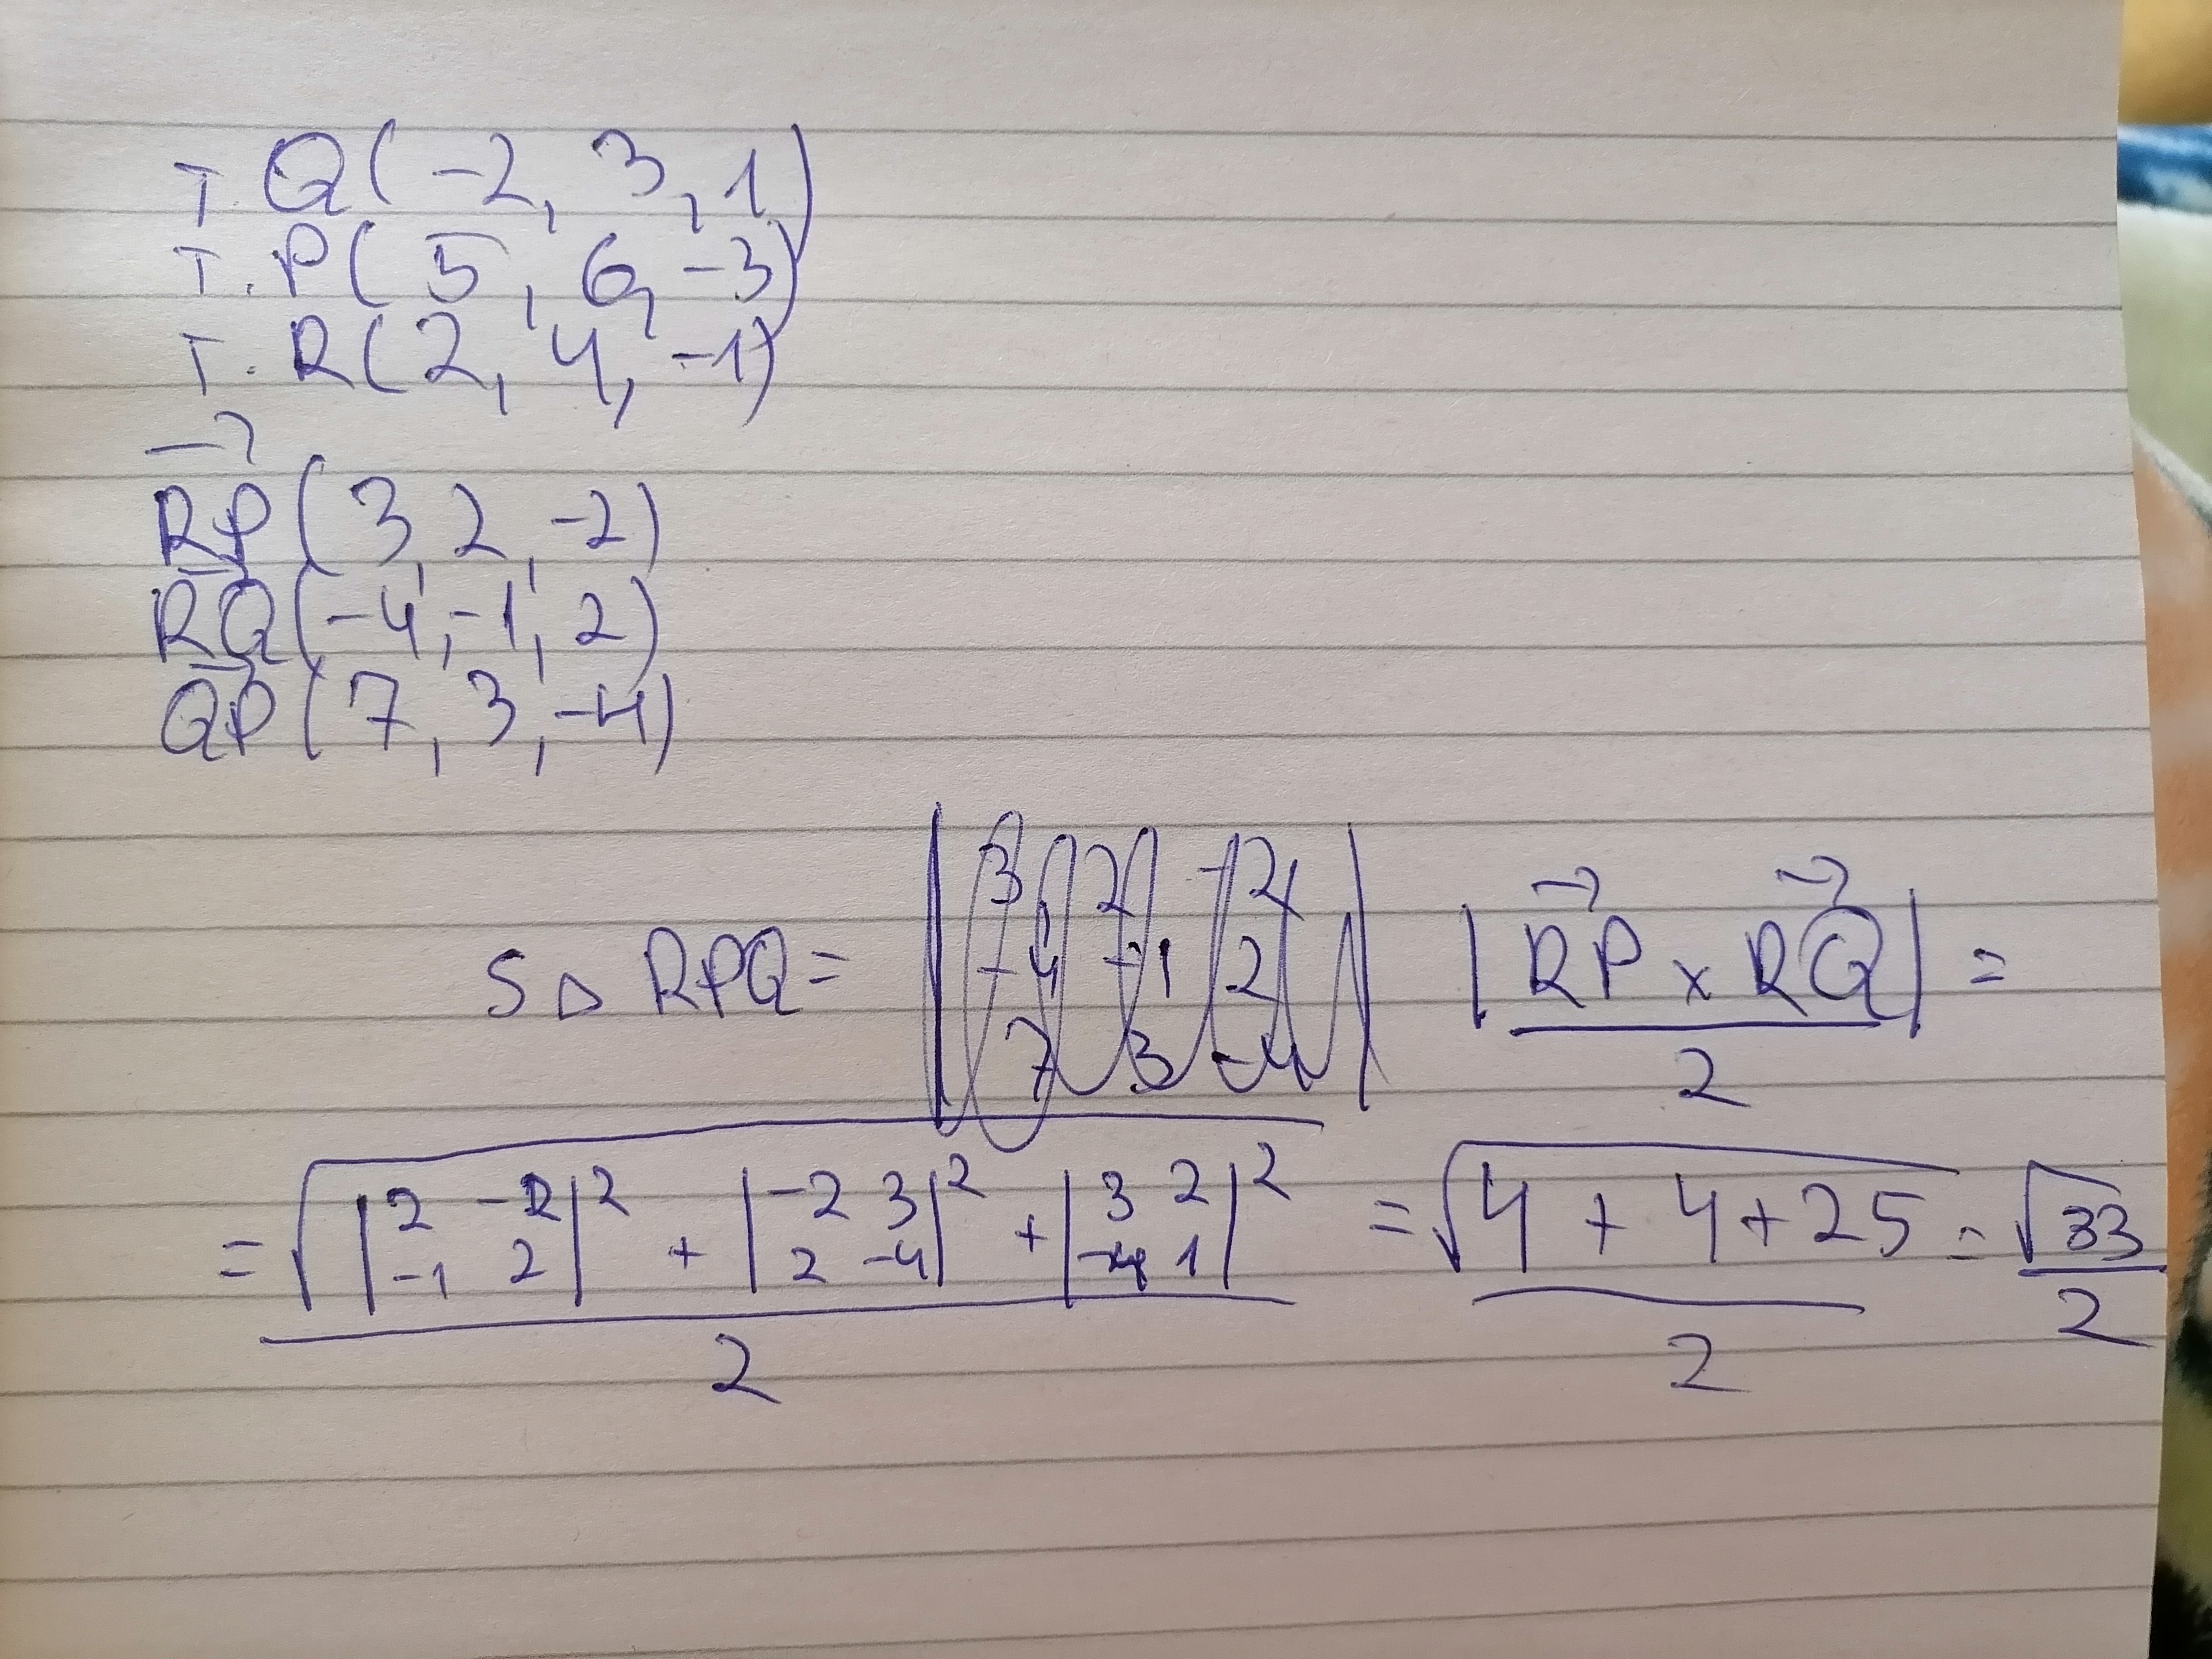 т. Q(-2, 3, 1)
т. P(5, 6, -3)
т. R(2, 4, -1)
RP→(3, 2, -2)
RQ→(-4, -1, 2)
QP→(7, 3, -4)
S△ RPQ = |RP→ x RQ→| / 2 =
= √(|2 -2; -1 2|² + |-2 3; 2 -4|² + |3 2; -4 1|²) / 2 = √(4 + 4 + 25) / 2 = √33 / 2